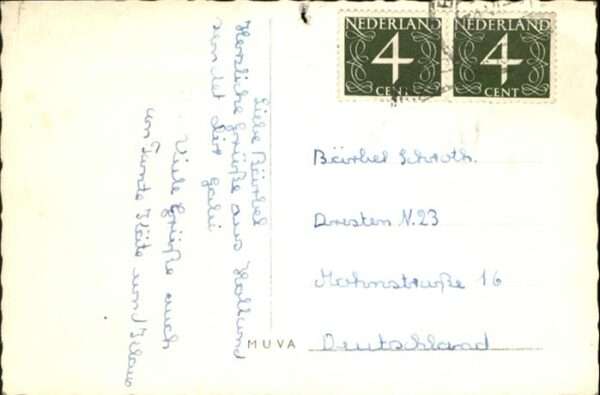 NEDERLAND
4
CENT
NEDERLAND
4
CENT
Liebe Bärbel
Herzliche Grüße aus Holland
sendet dir Gabi
Viele Grüße auch
von Tante Käte und Klaus
Bärbel Schroth.
Dresten N.23
Hohnstraße 16
Deutschland
MUVA